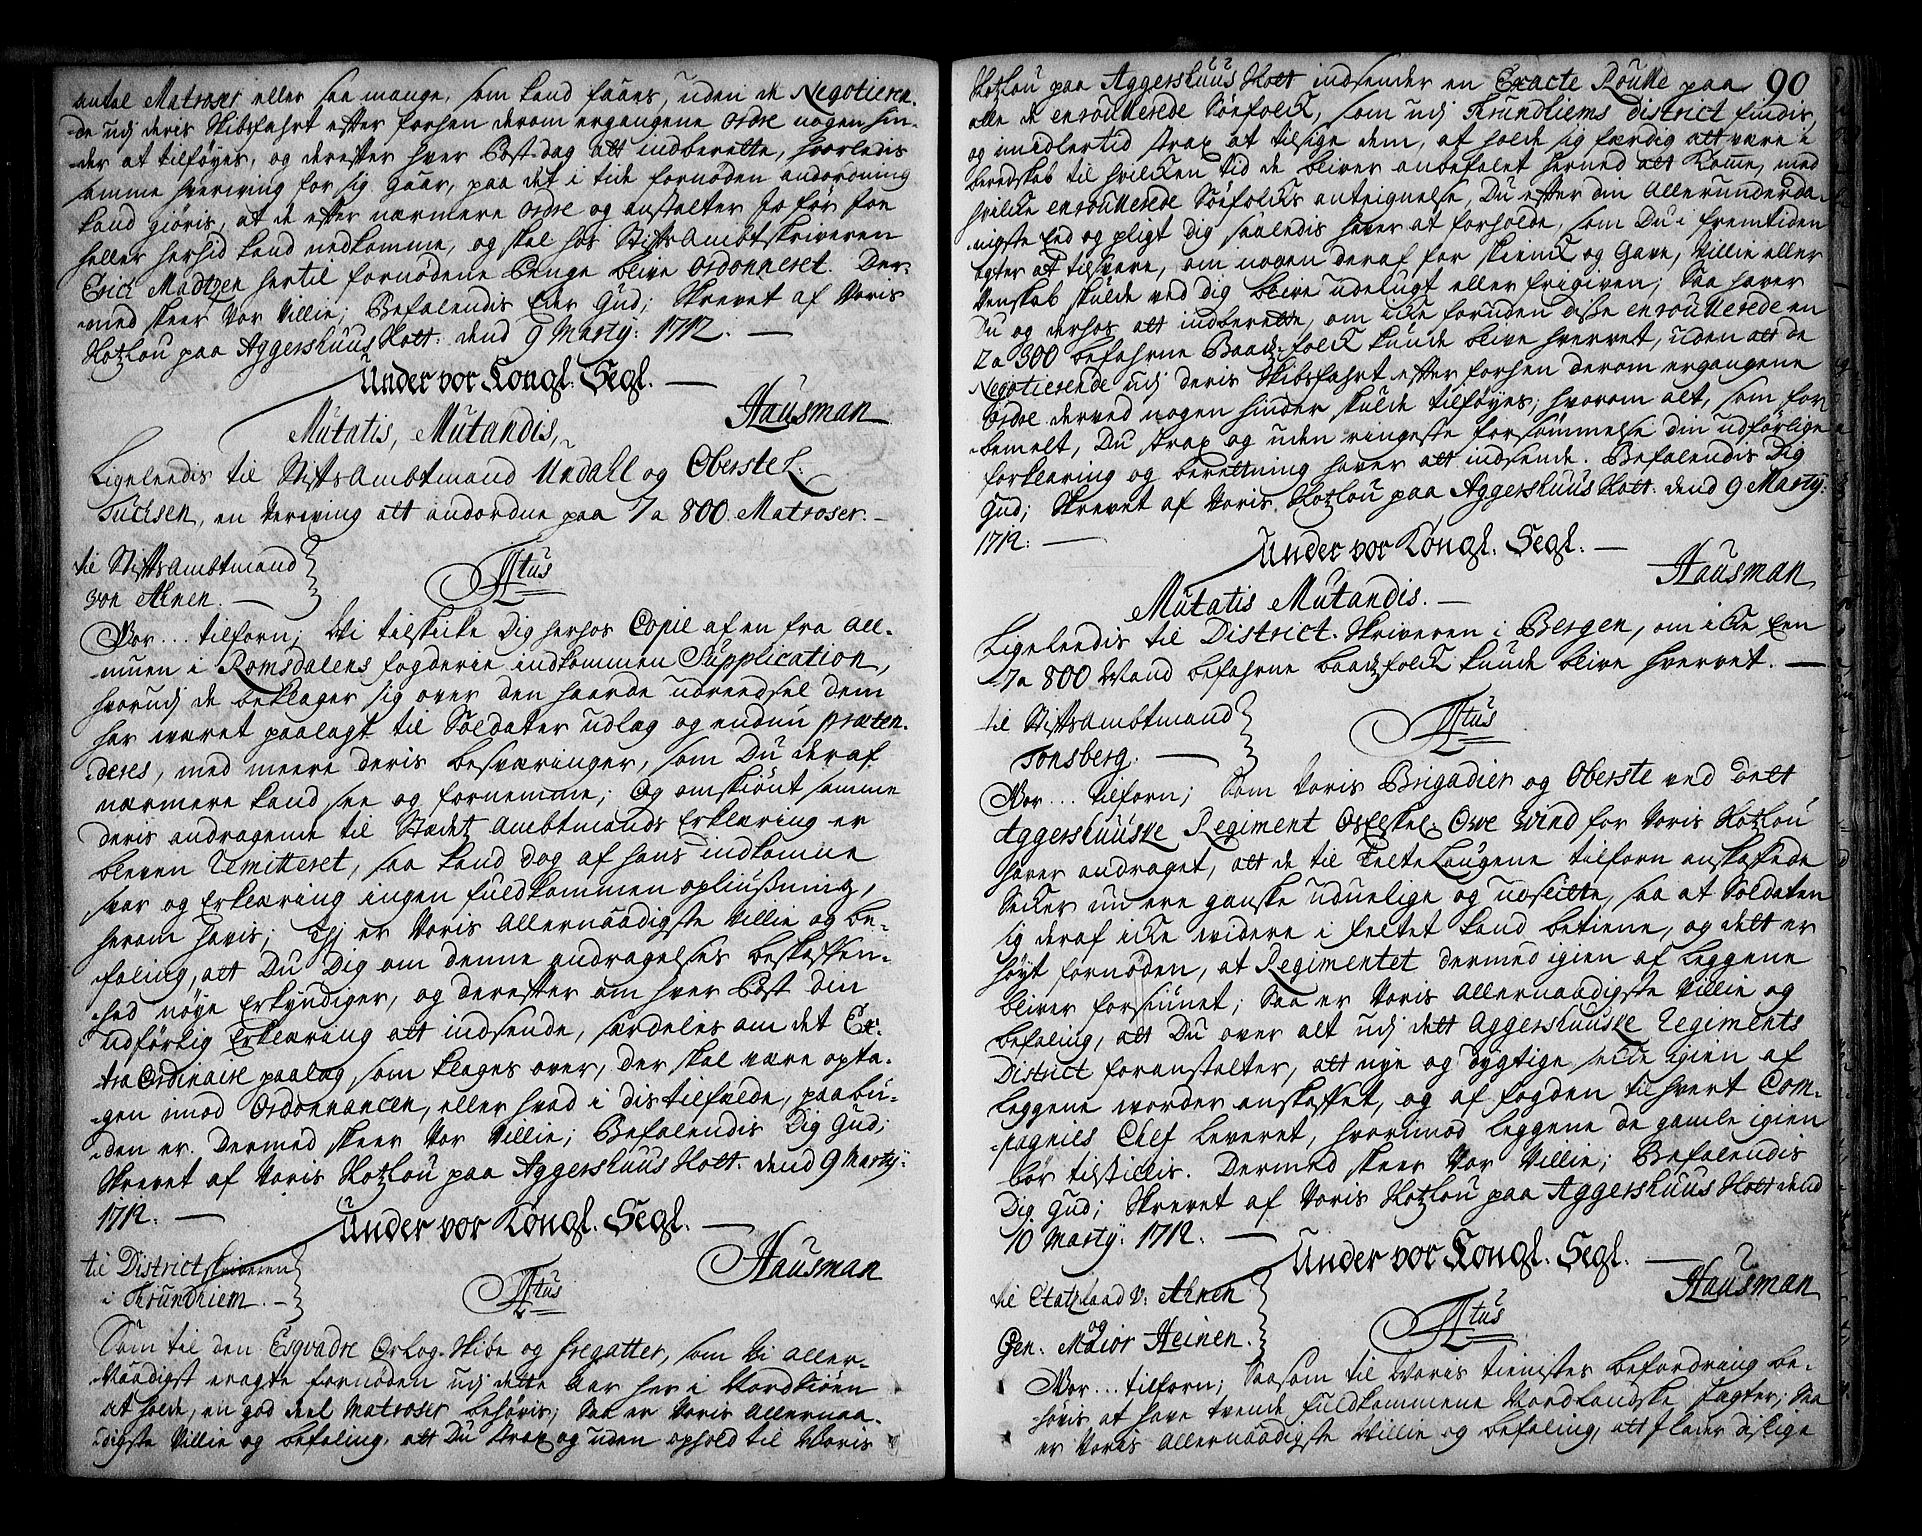 antal Matroser eller saa mange, som kand faaes, uden de Negotieren-
-de udj deris Skibsfahrt efter forhen derom ergangene Ordre nogen hin-
-der at tilføyes, og derefter hver Post-dag att indberette, hvorledis
samme hverving for sig gaar, paa det i tide fornøden andordning
kand giøris, at de efter nærmere Ordre og anstalter jo før joe
heller herhid kand nedkomme, og skal hos StiftsAmbtskriveren
Erich Madtzen hertil fornødene Penge blive Ordonneret. Der-
-med skeer Vor Villie; Befalendis Eder Gud; Skrevet af Voris
Slotzlou paa Aggershuus Slott: dend 9 Martij: 1712. —
Under vor Kongl. Segl. —
Hausman
Mutatis, Mutandis,
Ligeleedis til StiftsAmbtmand Undall og Oberste L:
Tuchsen, en Verving att andordne paa 7 a 800. Matroser. —
til StiftsAmbtmand
von Ahnen. —
Vor . . . tilforn; Vi tilskicke Dig herhos Copie af en fra All-
-muen i Romsdalens fogderie indkommen Supplication,
hvorudj de beklager sig over den haarde udreedsel dem
har været paalagt til Soldater udlæg og endnu præten-
-deres, med meere deris besværinger, som Du deraf
nærmere kand see og fornemme; Og omskiønt samme
deris andragende til Stædetz Ambtmands Erklæring er
bleven remitteret, saa kand dog af hans indkomne
svar og Erklæring ingen fuldkommen opliußning,
herom havis; Thj er Voris Allernaadigste Villie og be-
-faling, att Du Dig om denne andragelses beskaffen-
-hed nøye Erkyndiger, og derefter om hver Post din
udførlig Erklæring att indsende, særdeles om det Ex-
-tra Ordinaire paalæg, som klages over, der skal være opta-
-gen imod Ordonnancen, eller hvad i dis tilfælde, paabu-
-den er. Dermed skeer Vor Villie; Befalendis Dig Gud;
Skrevet af Voris Slotzlou paa Aggershuus Slott: dend 9 Martij:
1712. —
Under vor Kongl. Segl. —
Hausman
til Districtskriveren
i Trundhiem. —
Som til den Esqvadre Orlog-Skibe og fregatter, som Vi aller-
-Naadigst eragte fornøden udj dette Aar her i Nordsiøen
at holde, en god deel Matroser behøvis; Saa er Voris Allernaa-
-digste Villie og befaling, att Du strax og uden ophold til Voris
Slotzlou paa Aggershuus Slott indsender en Exacte Roulle paa 90
alle de enroullerede Søefolck, som udj Trundhiems District findis,
og imidlertid strax at tilsige dem, at holde sig færdig att være i
beredskab til hvilcken tid de bliver anbefalet herned att Komme, med
hvilcke enroullerede Søefolcks anteignelse, Du efter din Allerunderda-
-nigste Eed og pligt Dig saaledis haver at forholde, som Du i fremtiden
agter at tilsvare, om nogen deraf for skienck og Gave, Villie eller
Venskab skulde ved dig bleve udelugt eller frigiven; Saa haver
Du og derhos att indberette, om icke foruden disse enroullerede en
2 a 300 befahrne Baadtzfolck kunde blive hvervet, uden att de
Negotierende udj deris Skibsfahrt efter forhen derom ergangene
Ordre derved nogen hinder skulde tilføyes; hvorom alt, som for-
-bemelt, Du strax og uden ringeste forsømmelse din udførlige
forklaring og berettning haver att indsende. Befalendis Dig
Gud; Skrevet af Voris Slotzlou paa Aggershuus Slott: dend 9 Martij:
1712. —
Under vor Kongl. Segl. —
Hausman
Mutatis Mutandis. —
Ligeleedis til District-Skriveren i Bergen, om icke Een
7 a 800 Mand befahrne baadtzfolck kunde blive hvervet. —
til StiftsAmbtmand
Tonsberg. —
Vor . . . tilforn; Som Voris Brigadier og Oberste ved Dett
Aggershuuske Regiment Os Elskel: Owe Wind for Voris Slotzlou
haver andraget, att de til Telte Laugene tilforn anskaffede
Secker nu ere ganske uduelige og udslitte, saa at Soldaten
sig deraf icke widere i feltet kand betiene, og dett er
høyt fornøden, at Regimentet dermed igien af Leggene
bliver forsiunet; Saa er Voris Allernaadigste Villie og
befaling, att Du over alt udj dett Aggershuuske Regiments
District foranstalter, att nye og dygtige, ... igien af
Leggene worder anskaffet, og af fogden til hvert Com-
-pagnies Chef leveret, hvorimod Leggene de gamle igien
bør tilstillis. Dermed skeer Vor Villie; Befalendis
Dig Gud; Skrevet af Voris Slotzlou paa Aggershuus Slott dend
10 Martij: 1712. —
Under vor Kongl. Segl. —
Hausman
til Etatzraad v: Ahnen
og
Gen: Maior Heinen. —
Vor . . . tilforn; Saasom til Voris tienistes befordring be-
-høvis at have tvende fuldkommene Nordlandske Jagter; Saa
er Voris Allernaadigste Villie og befaling, att J lader deslige